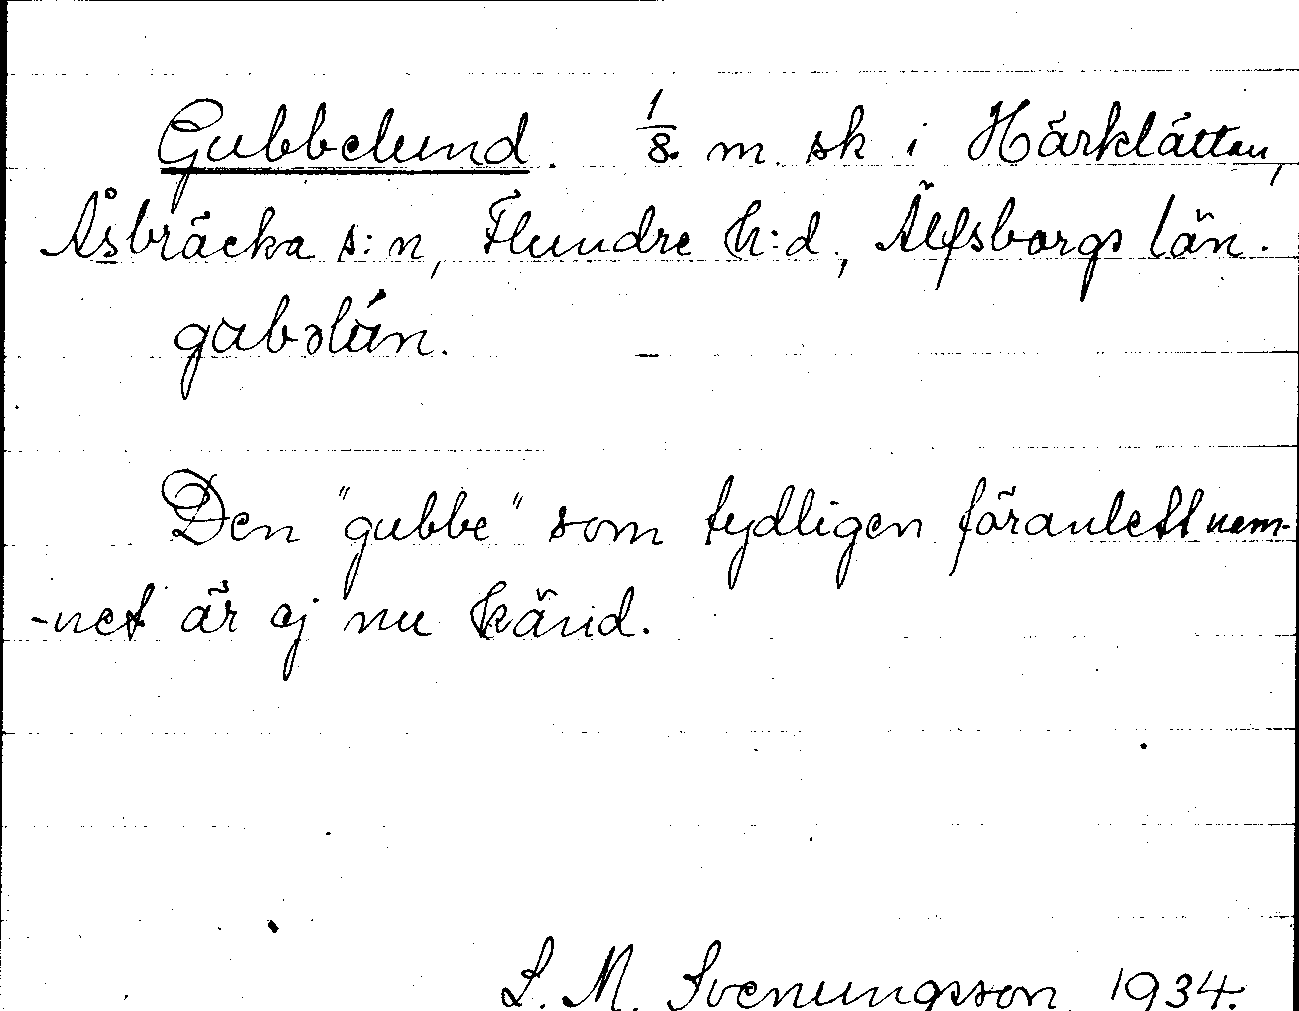 Gubbelund. 1/8 m. sk i Härklätten,
Åsbräcka s:n, Flundre h:d, Älfsborgs län.
gubəlún.
Den "gubbe" som tydligen föranlett nam-
-net är ej nu känd.
S. M. Svenungsson 1934.